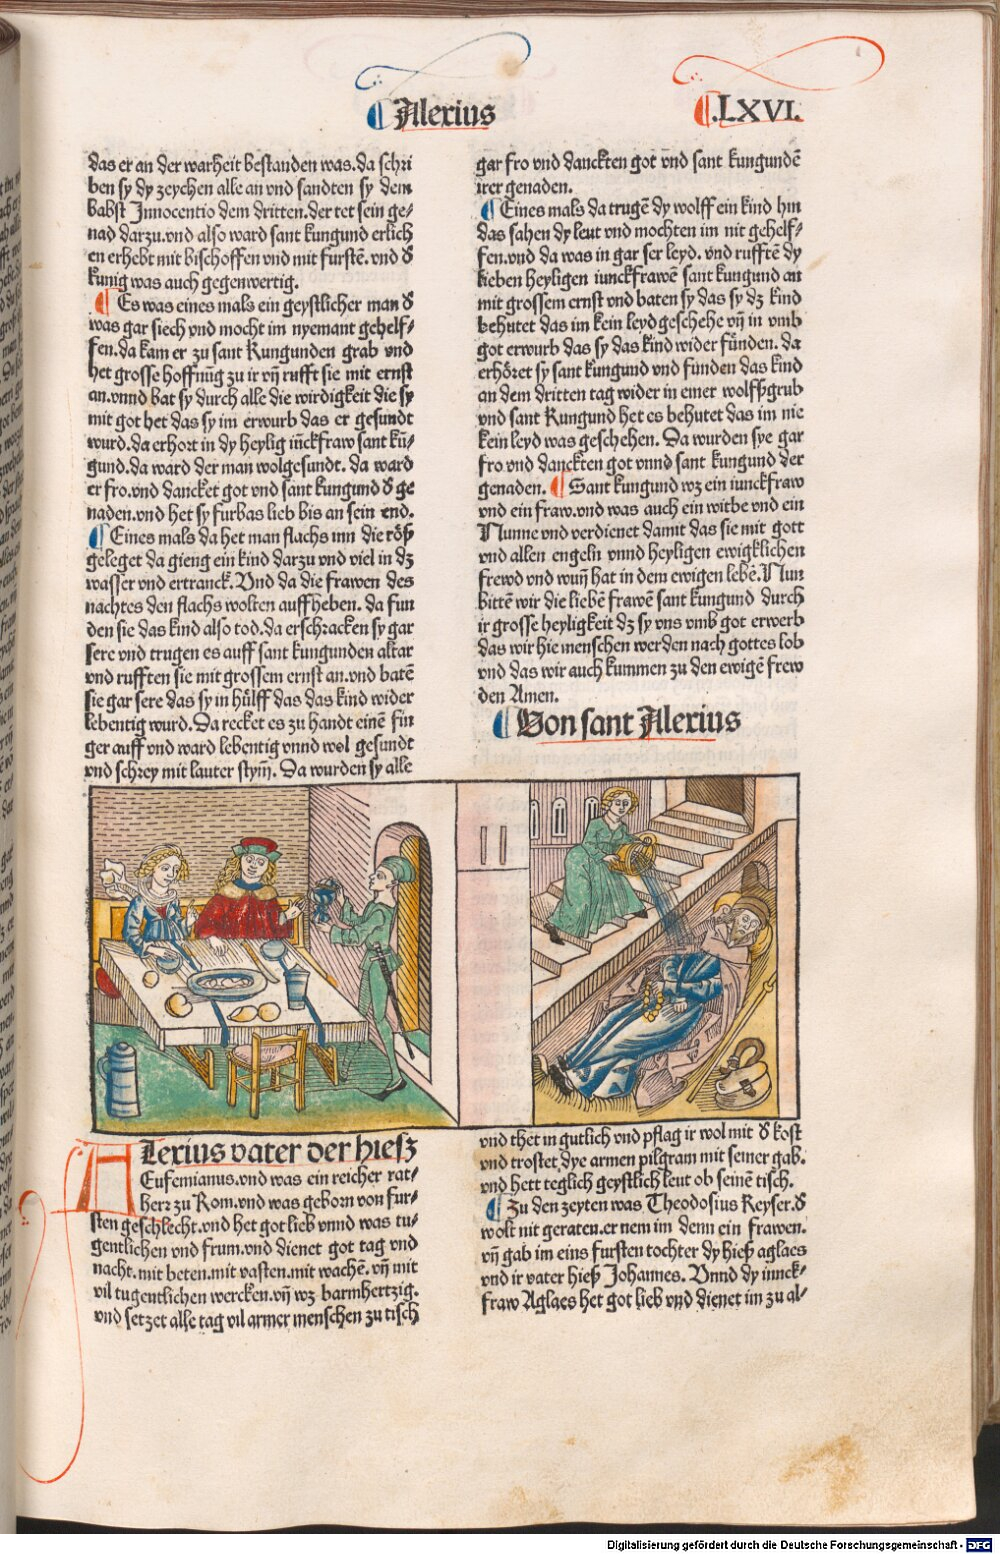 ¶ Alexius
¶.LXVI.
das er an der warheit bestanden was.da schri
ben sy dy zeychen alle an vnd sandten sy dem
babst Innocentio dem dritten.der tet sein ge-
nad darzu.vnd also ward sant kungund erlich
en erhebt mit bischoffen vnd mit furstē.vnd ď
kunig was auch gegenwertig.
¶ Es was eines mals ein geystlicher man ď
was gar siech vnd mocht im nyemant gehelf-
fen.da kam er zu sant Kungunden grab vnd
het grosse hoffnūg zu ir vn̄ rufft sie mit ernst
an.vnnd bat sy durch alle die wirdigkeit die sy
mit got het das sy im erwurb das er gesundt
wurd.da erhort in dy heylig iūckfraw sant kū-
gund.da ward der man wolgesundt. da ward
er fro.vnd dancket got vnd sant kungund ď ge
naden.vnd het sy furbas lieb bis an sein end.
¶ Eines mals da het man flachs inn die röß
geleget da gieng ein kind darzu vnd viel in dz
wasser vnd ertranck. Vnd da die frawen des
nachtes den flachs wolten auffheben. da fun
den sie das kind also tod.da erschracken sy gar
sere vnd trugen es auff sant kungunden altar
vnd rufften sie mit grossem ernst an.vnd batē
sie gar sere das sy in hülff das das kind wider
lebentig wurd. Da recket es zu handt einē fin
ger auff vnd ward lebentig vnnd wol gesundt
vnd schrey mit lauter stym̄. Da wurden sy alle
gar fro vnd danckten got vnd sant kungundē
irer genaden.
¶ Eines mals da trugē dy wolff ein kind hin
das sahen dy leut vnd mochten im nit gehelf-
fen.vnd da was in gar ser leyd. vnd rufftē dy
lieben heyligen iunckfrawē sant kungund an
mit grossem ernst vnd baten sy das sy dz kind
behutet das im kein leyd geschehe vn̄ in vmb
got erwurb das sy das kind wider fünden. da
erhöret sy sant kungund vnd funden das kind
an dem dritten tag wider in einer wolffßgrub
vnd sant Kungund het es behutet das im nie
kein leyd was geschehen. Da wurden sye gar
fro vnd danckten got vnnd sant kungund der
genaden. ¶ Sant kungund wz ein iunckfraw
vnd ein fraw.vnd was auch ein witbe vnd ein
Nunne vnd verdienet damit das sie mit gott
vnd allen engeln vnnd heyligen ewigklichen
frewd vnd wun̄ hat in dem ewigen lebē. Nun
bittē wir die liebē frawē sant kungund durch
ir grosse heyligkeit dz sy vns vmb got erwerb
das wir hie menschen werden nach gottes lob
vnd das wir auch kummen zu den ewigē frew
den Amen.
¶ Von sant Alexius
Alexius vater der hiesz
Eufemianus.vnd was ein reicher rat-
herr zu Rom.vnd was geborn von fur-
sten geschlecht.vnd het got lieb vnnd was tu-
gentlichen vnd frum.vnd dienet got tag vnd
nacht.mit beten.mit vasten.mit wachē.vn̄ mit
vil tugentlichen wercken.vn̄ wz barmhertzig.
vnd setzet alle tag vil armer menschen zu tisch
vnd thet in gutlich vnd pflag ir wol mit ď kost
vnd trostet dye armen pilgram mit seiner gab.
vnd hett teglich geystlich leut ob seinē tisch.
¶ Zu den zeyten was Theodosius Keyser.ď
wolt nit geraten.er nem im denn ein frawen.
vn̄ gab im eins fursten tochter dy hieß aglaes
vnd ir vater hieß Johannes. Vnnd dy iunck-
fraw Aglaes het got lieb vnd dienet im zu al-
Digitalisierung gefördert durch die Deutsche Forschungsgemeinschaft - DFG